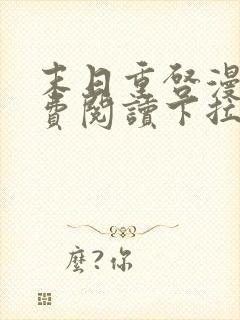 末日重啓漫
費閱讀下拉
麼?你